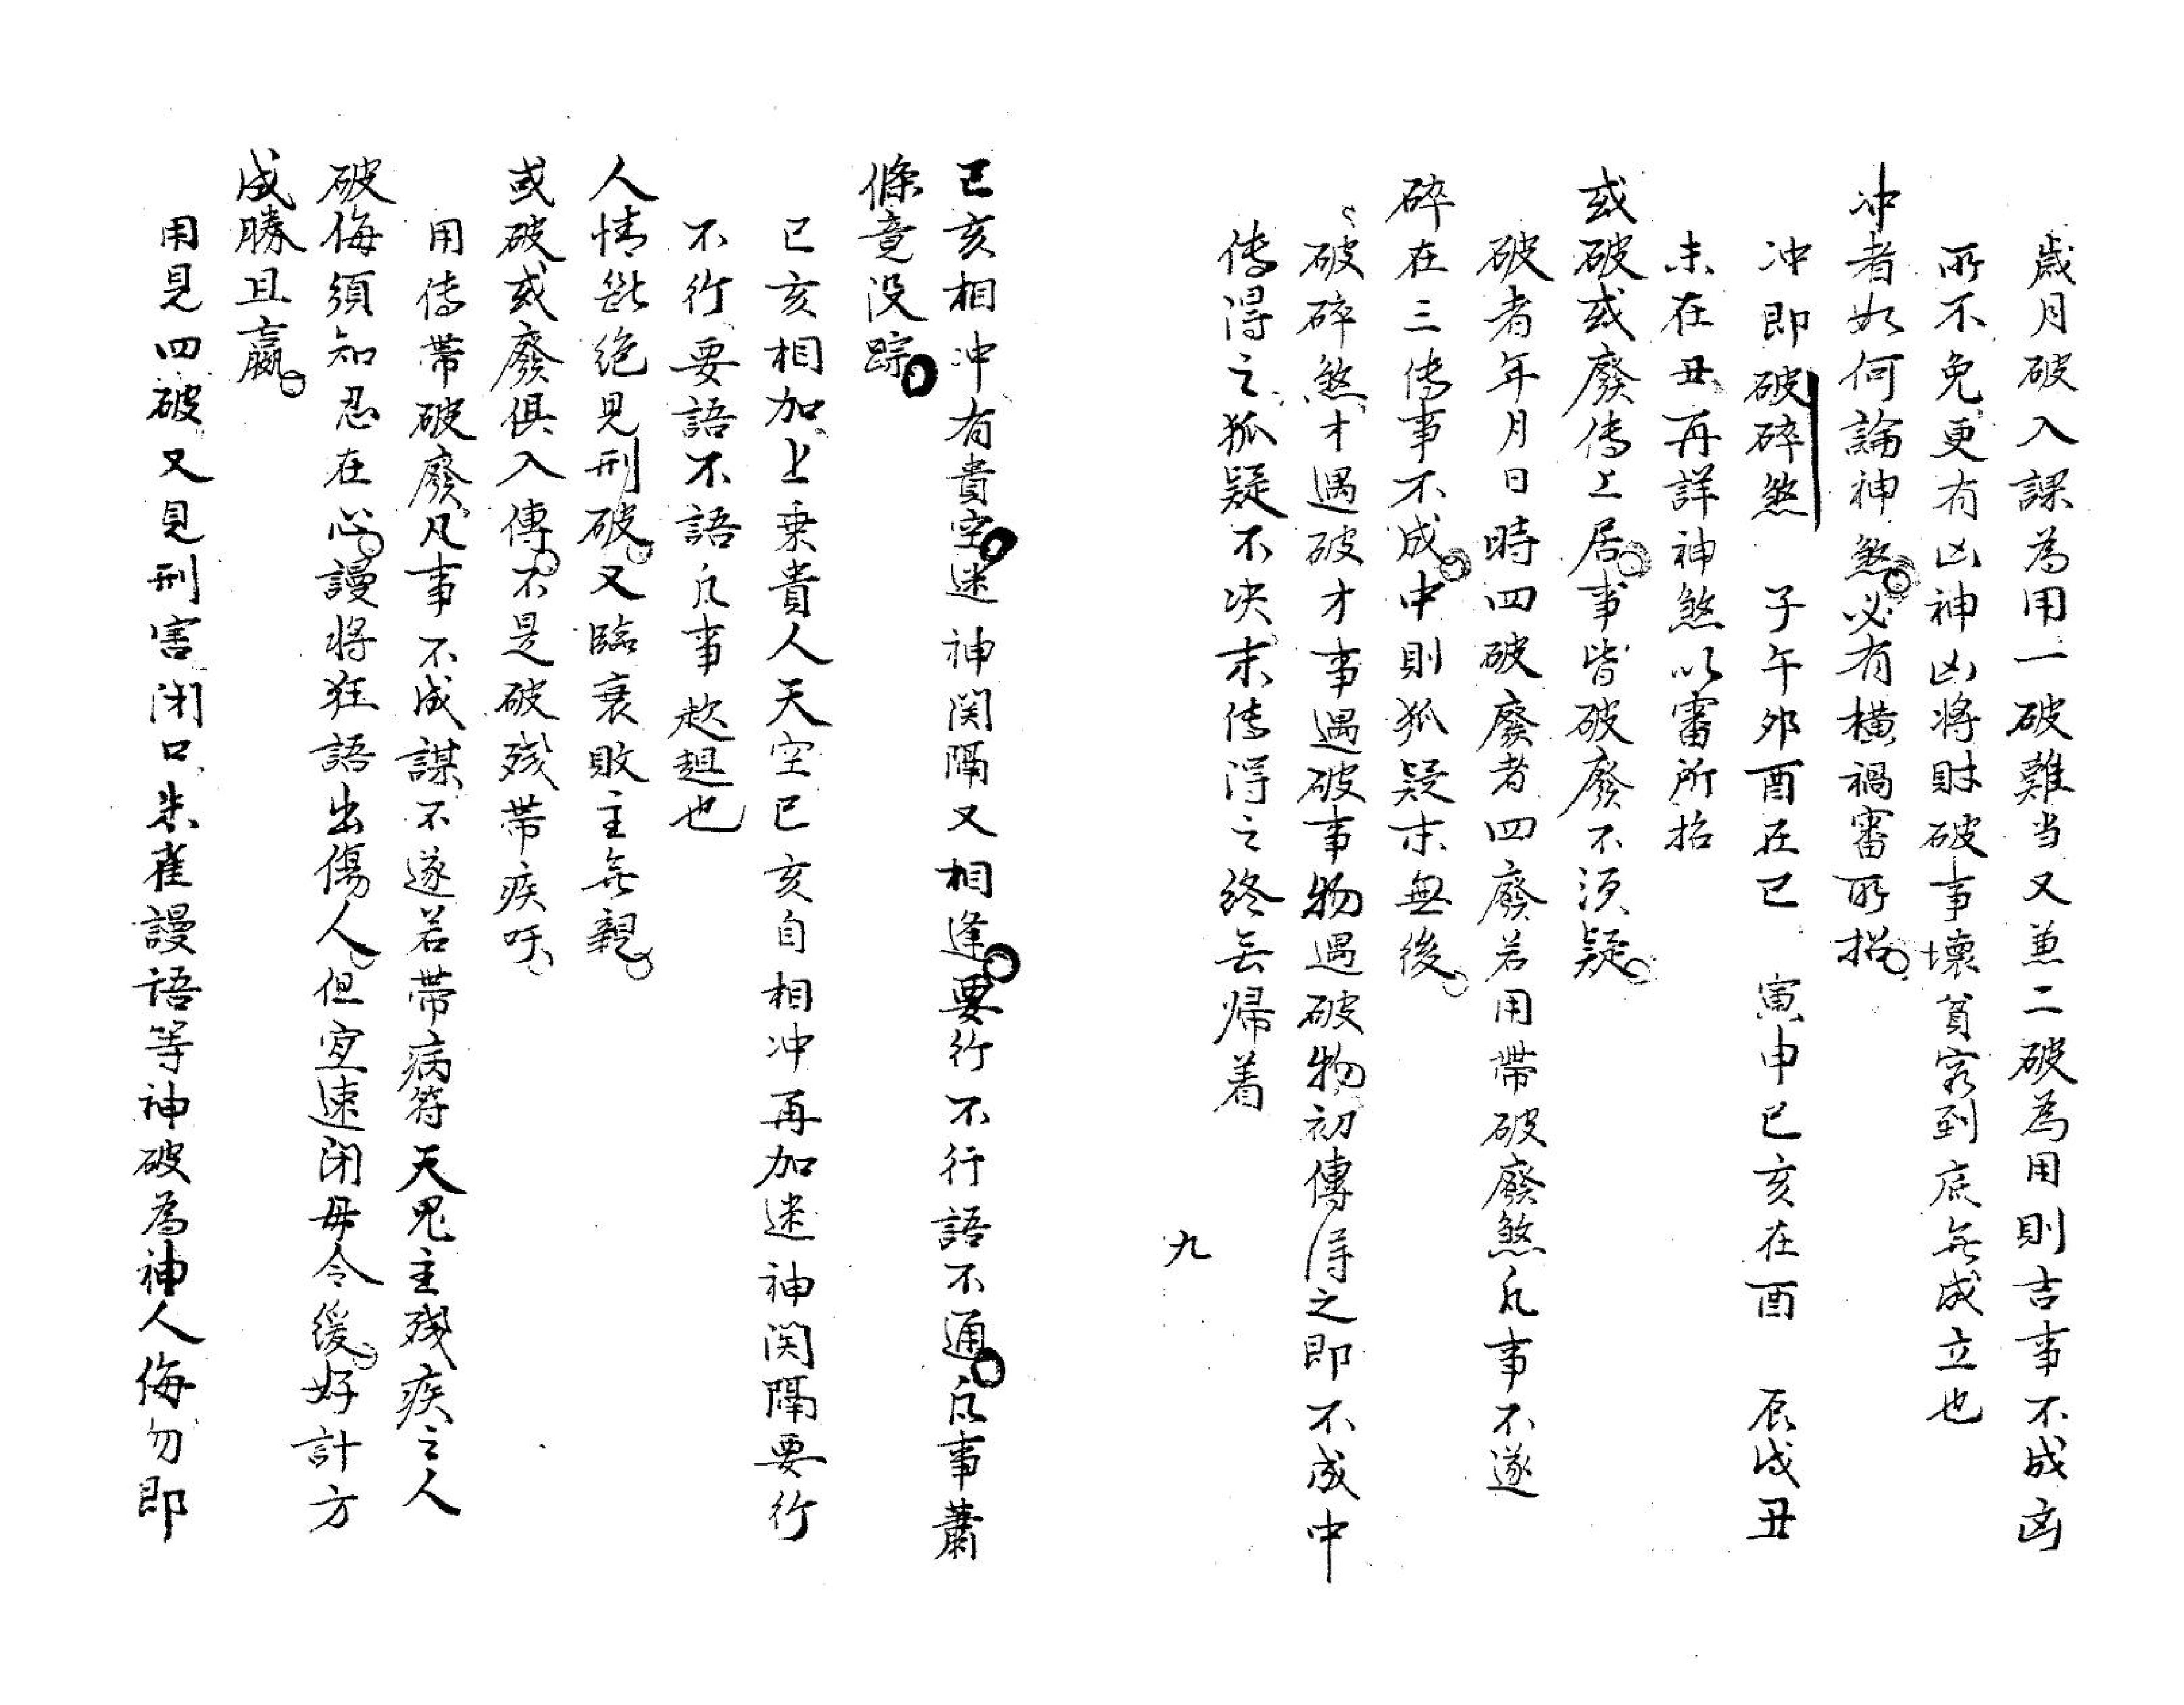 歲月破入課為用一破難当又兼二破為用則吉事不成凶
所不免更有凶神凶将財破事壞貧窮到底无成立也
冲者如何論神煞必有横禍審所招
冲即破碎煞　子午夘酉在巳　寅申巳亥在酉　辰戌丑
未在丑再詳神煞以審所招
或破或廢傳上居事皆破廢不須疑
破者年月日時四破廢者四廢若用帶破廢煞凡事不遂
碎在三傳事不成中則狐疑末無後
破碎煞才遇破才事遇破事物遇破物初傳得之即不成中
傳得之狐疑不决末傳得之終无帰着
九
巳亥相冲有貴空迷神関隔又相逢要行不行語不通凡事蕭
條竟没踪
巳亥相加上乗貴人天空巳亥自相冲再加迷神関隔要行
不行要語不語凡事趑趄也
人情斷绝見刑破又臨衰敗主无親
或破或廢俱入傳不是破残帶疾吁
用傳帶破廢凡事不成謀不遂若帶病符天鬼主殘疾之人
破侮須知忍在心謾将狂語出傷人但宜速闭毋令缓好計方
成勝且贏
用見四破又見刑害闭口朱雀謾语等神破為神人侮勿即